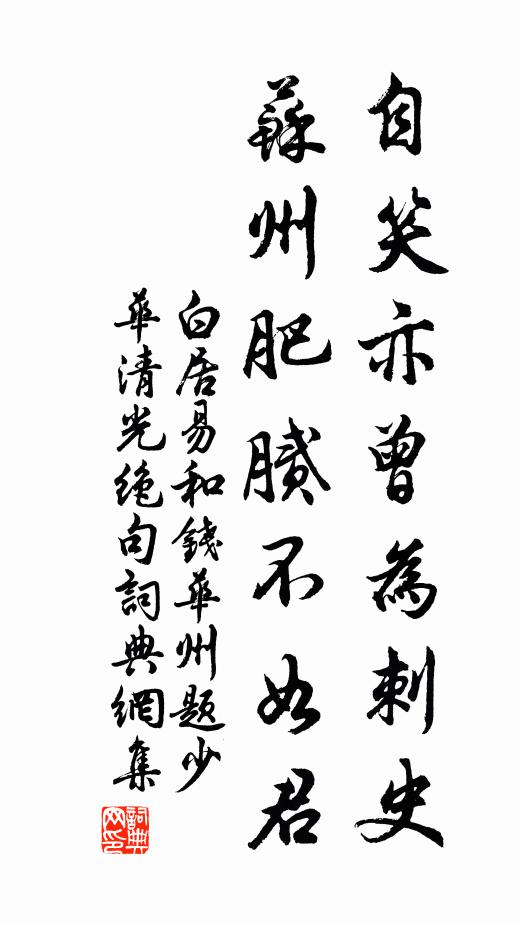 自笑亦曾為刺史
蘇州肥膩不如君
白居易和錢華州題少
華清光絶句詞典網集
詞典
网印